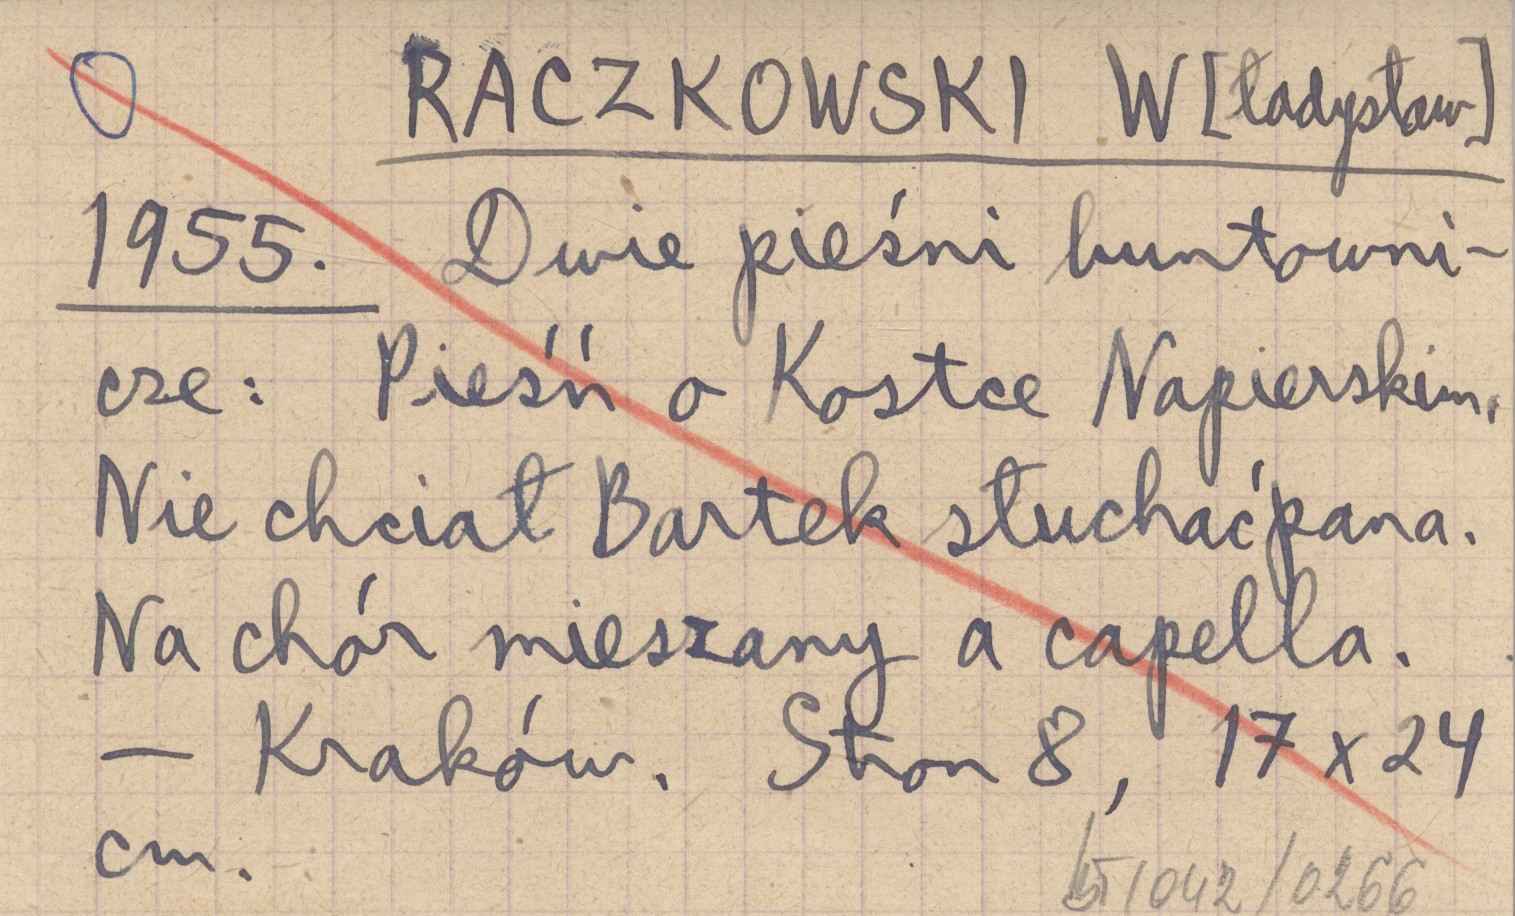 RACZKOWSKI W[ładysław]
1955. Dwie pieśni buntowni-
cze: Pieśń o Kostce Napierskim,
Nie chciał Bartek słuchać pana.
Na chór mieszany a capella.
— Kraków. Stron 8, 17 x 24
cm.
1042/0266